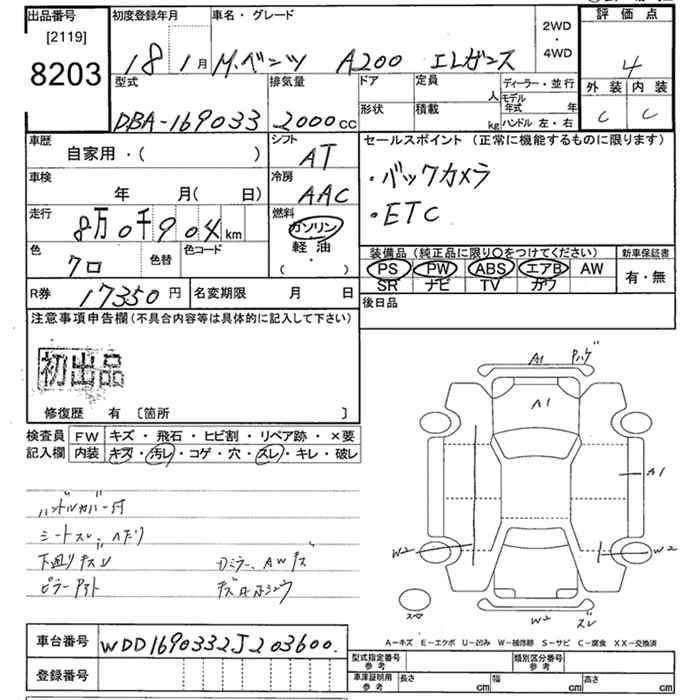 出品番号 [2119] 8203
初度登録年月 18 1月
車名・グレード M.ベンツ A200 エレガンス
2WD・4WD
評価点 4
外装 C 内装 C
型式 DBA-169033
排気量 2000cc
ドア
形状
定員 人
積載 kg
ディーラー・並行
モデル年式 年
ハンドル 左・右
車歴 自家用・( )
シフト AT
セールスポイント(正常に機能するものに限ります)
・バックカメラ
・ETC
車検 年 月( 日)
冷房 AAC
走行 8万0千904km
燃料 ガソリン 軽油 ( ・ )
色 クロ
色替
色コード
装備品(純正品に限り○をつけてください)
PS PW ABS エアB AW
SR ナビ TV カワ
新車保証書 有・無
R券 17350円
名変期限 月 日
後日品
注意事項申告欄(不具合内容等は具体的に記入して下さい)
初出品
修復歴 有〔箇所 〕
検査員記入欄
FW キズ・飛石・ヒビ割・リペア跡・×要
内装 キズ・汚レ・コゲ・穴・スレ・キレ・破レ
ハンドルカバー付
シートスレ、ヘタリ
下廻りキズ
ミラー、AWキズ
ピラー
A1
A1
A1
W2
W2
W2 ズレ
A-キズ E-エクボ U-凹み W-補修跡 S-サビ C-腐食 XX-交換済
車台番号 WDD1690332J203600.
登録番号
型式指定番号 参考
類別区分番号 参考
車庫証明用 参考 長さ cm 幅 cm 高さ cm